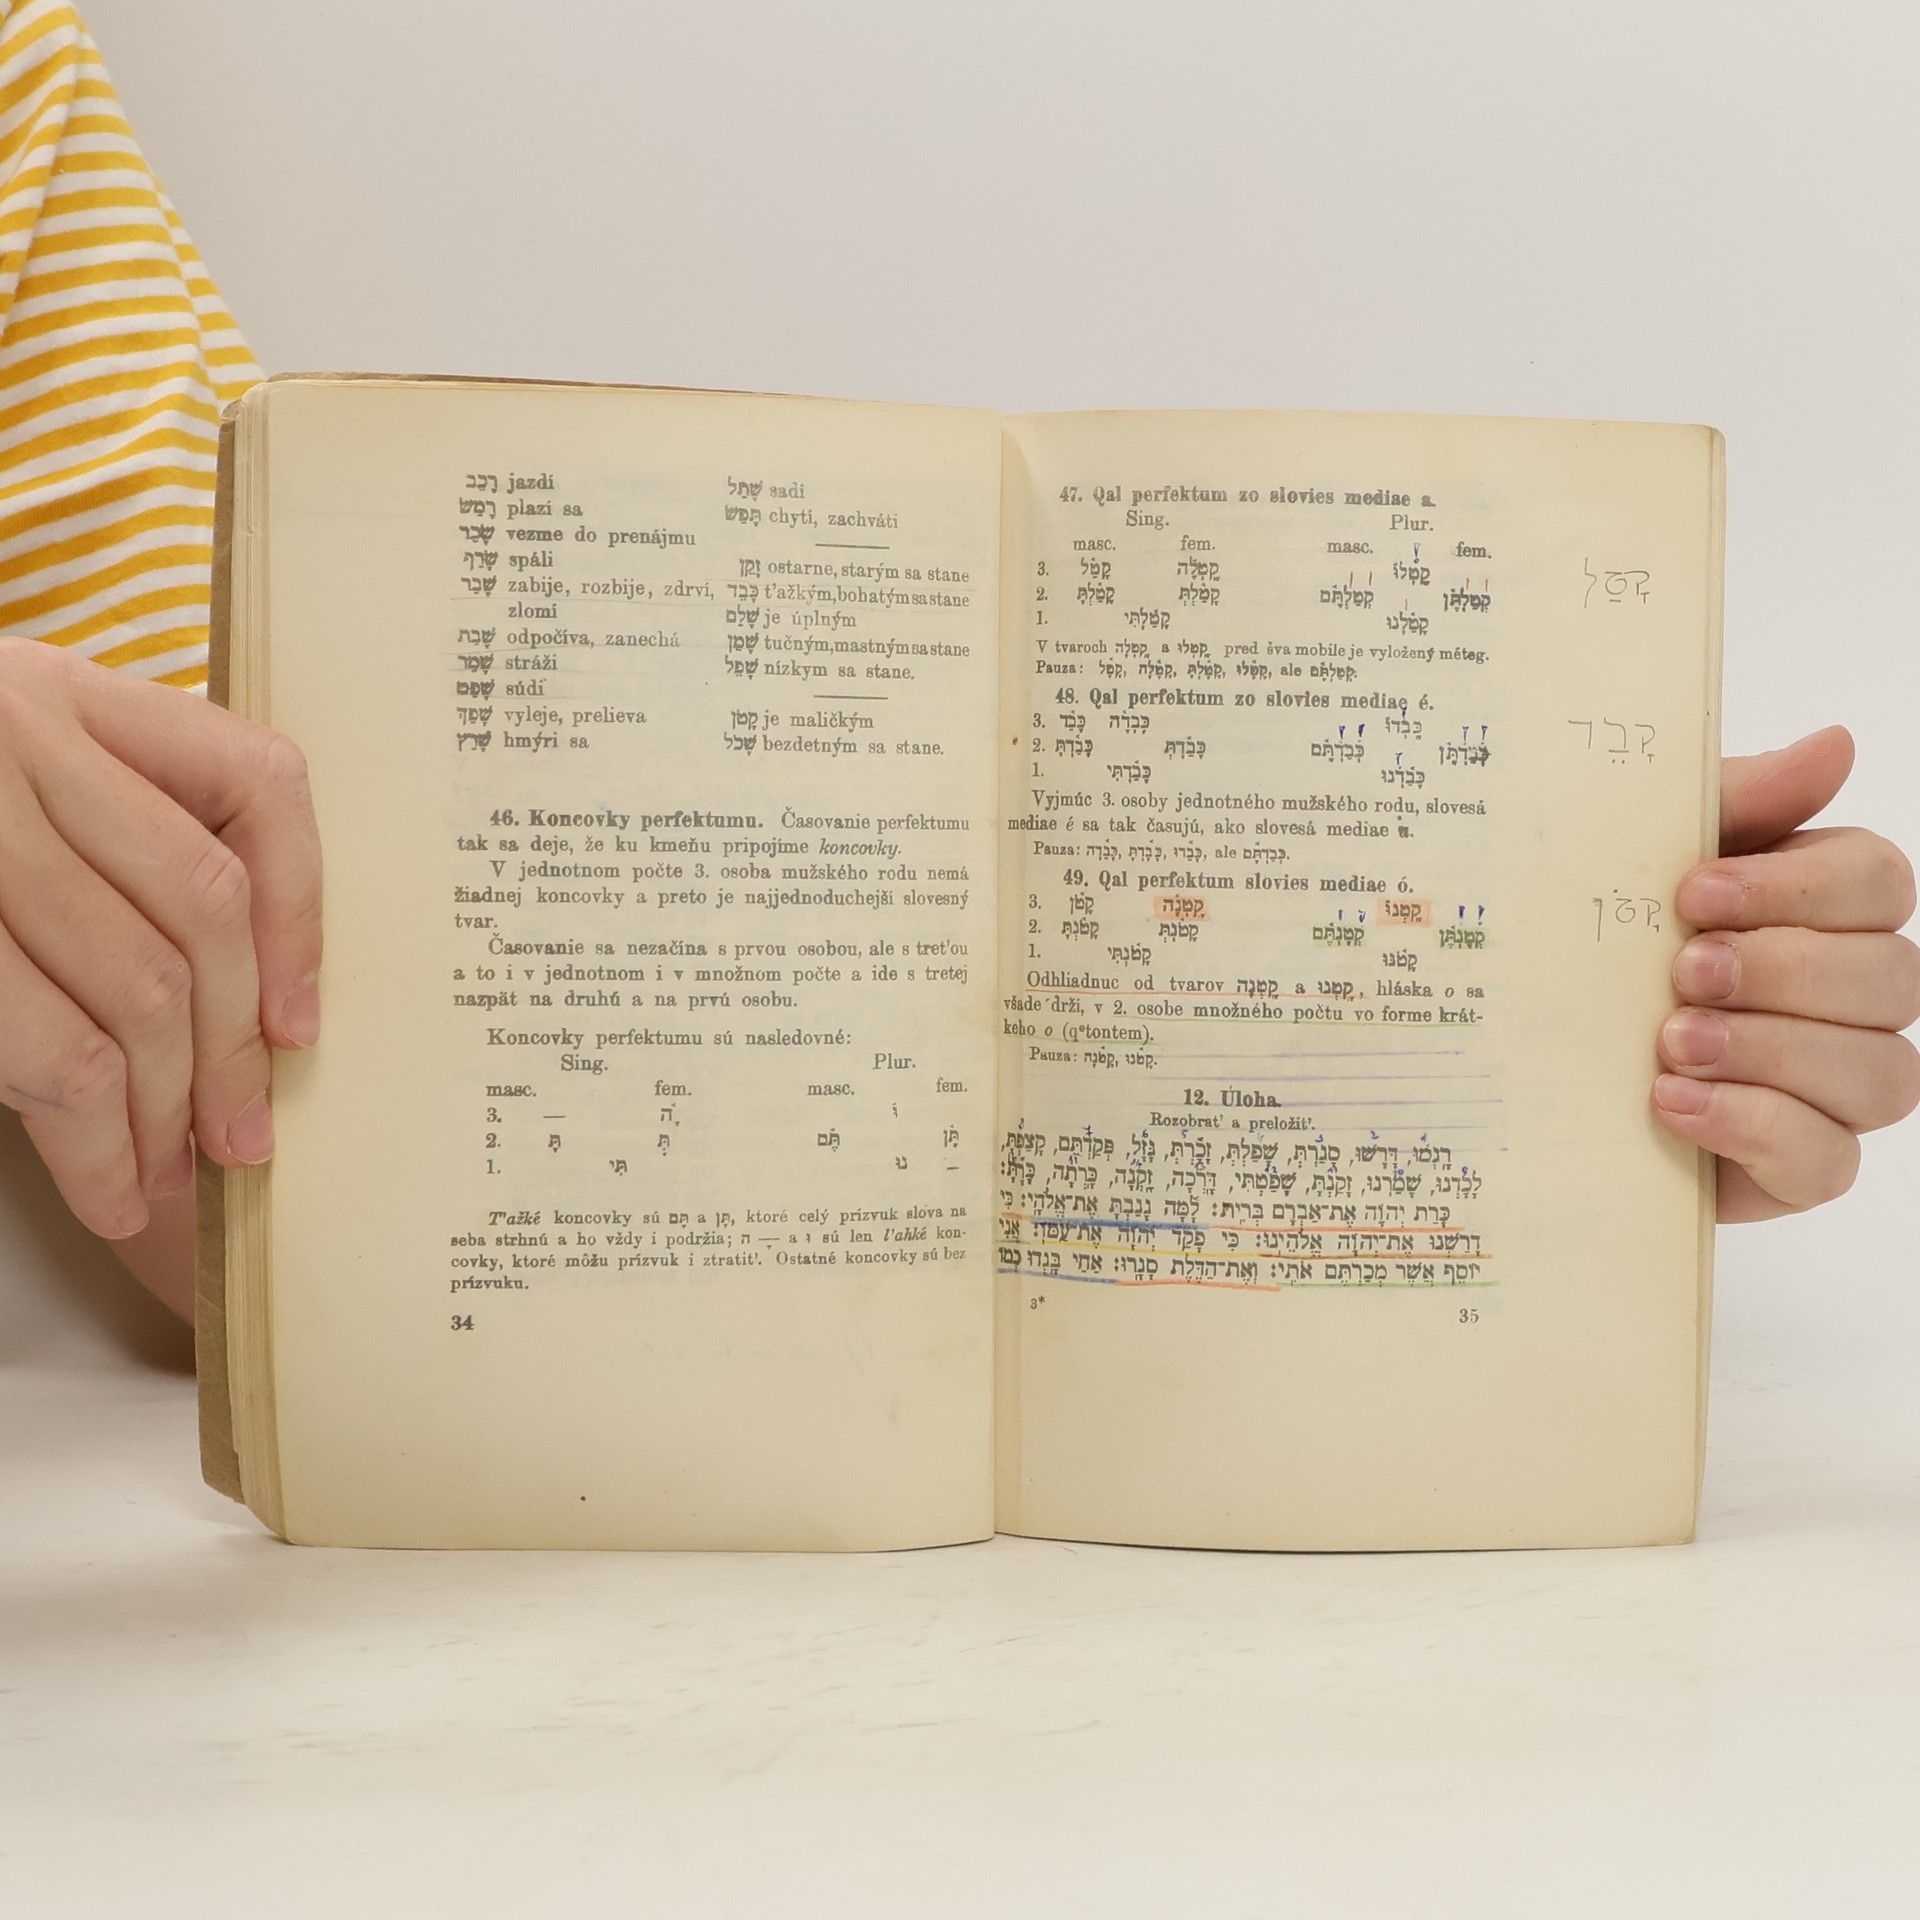 רָכַב jazdí
רָמַשׂ plazí sa
שָׂכַר vezme do prenájmu
שָׂרַף spáli
שָׁבַר zabije, rozbije, zdrví,
zlomí
שָׁבַת odpočíva, zanechá
שָׁמַר stráži
שָׁפַט súdi
שָׁפַךְ vyleje, prelieva
שָׁרַץ hmýri sa
שָׁתַל sadí
תָּפַשׂ chytí, zachváti
זָקֵן ostarne, starým sa stane
כָּבֵד ťažkým, bohatým sa stane
שָׁלֵם je úplným
שָׁמֵן tučným, mastným sa stane
שָׁפֵל nízkym sa stane.
קָטֹן je maličkým
שָׁכֹל bezdetným sa stane.
46. Koncovky perfektumu. Časovanie perfektumu
tak sa deje, že ku kmeňu pripojíme koncovky.
V jednotnom počte 3. osoba mužského rodu nemá
žiadnej koncovky a preto je najjednoduchejší slovesný
tvar.
Časovanie sa nezačína s prvou osobou, ale s treťou
a to i v jednotnom i v množnom počte a ide s tretej
nazpät na druhú a na prvú osobu.
Koncovky perfektumu sú nasledovné:
Sing. Plur.
masc. fem. masc. fem.
3. — ָה וּ
2. תָּ תְּ תֶּם תֶּן
1. תִּי נוּ —
Ťažké koncovky sú תֶּם a תֶּן, ktoré celý prízvuk slova na
seba strhnú a ho vždy i podržia; ָה — a וּ sú len ľahké kon-
covky, ktoré môžu prízvuk i ztratiť. Ostatné koncovky sú bez
prízvuku.
34
47. Qal perfektum zo slovies mediae a.
Sing. Plur.
masc. fem. masc. fem.
3. קָטַל קָטְלָה קָטְלוּ
2. קָטַלְתָּ קָטַלְתְּ קְטַלְתֶּם קְטַלְתֶּן
1. קָטַלְתִּי קָטַלְנוּ
קָטַל
V tvaroch קָטְלָה a קָטְלוּ pred šva mobile je vyložený méteg.
Pauza: קָטָל, קָטָלָה, קָטָלְתָּ, קָטָלוּ, ale קְטַלְתֶּם.
48. Qal perfektum zo slovies mediae é.
3. כָּבֵד כָּבְדָה כָּבְדוּ
2. כָּבַדְתָּ כָּבַדְתְּ כְּבַדְתֶּם כְּבַדְתֶּן
1. כָּבַדְתִּי כָּבַדְנוּ
קָבֵד
Vyjmúc 3. osoby jednotného mužského rodu, slovesá
mediae é sa tak časujú, ako slovesá mediae a.
Pauza: כָּבֵדָה, כָּבָדְתָּ, כָּבֵדוּ, ale כְּבַדְתֶּם.
49. Qal perfektum slovies mediae ó.
3. קָטֹן קָטְנָה קָטְנוּ
2. קָטֹנְתָּ קָטֹנְתְּ קְטָנְתֶּם קְטָנְתֶּן
1. קָטֹנְתִּי קָטֹנּוּ
קָטֹן
Odhliadnuc od tvarov קָטְנָה a קָטְנוּ, hláska o sa
všade drží, v 2. osobe množného počtu vo forme krát-
keho o (qᵉtontem).
Pauza: קָטֹנָה, קָטֹנוּ.
12. Úloha.
Rozobrať a preložiť.
דָּרָשׁוּ, סָגַרְתְּ, שָׁפַלְתְּ, זָכַרְתְּ, גָּזָל, פְּקַדְתֶּם,
לָכַדְנוּ, שָׁמַרְנוּ, זָקַנְתָּ, שָׁפַטְתִּי, דָּרְכָה, זָקְנָה, כָּרְתָה, כָּרַתָּ:
כָּרַת יְהוָה אֶת־אַבְרָם בְּרִית: לָמָּה גָנַבְתָּ אֶת־אֱלֹהָי: כִּי
דָרַשְׁנוּ אֶת־יְהוָה אֱלֹהֵינוּ: כִּי פָקַד יְהוָה אֶת־עַמּוֹ: אֲנִי
יוֹסֵף אֲשֶׁר מְכַרְתֶּם אֹתִי: וְאֶת־הַדֶּלֶת סָגָרוּ: אַחַי בָּגְדוּ כְמוֹ
3*
35